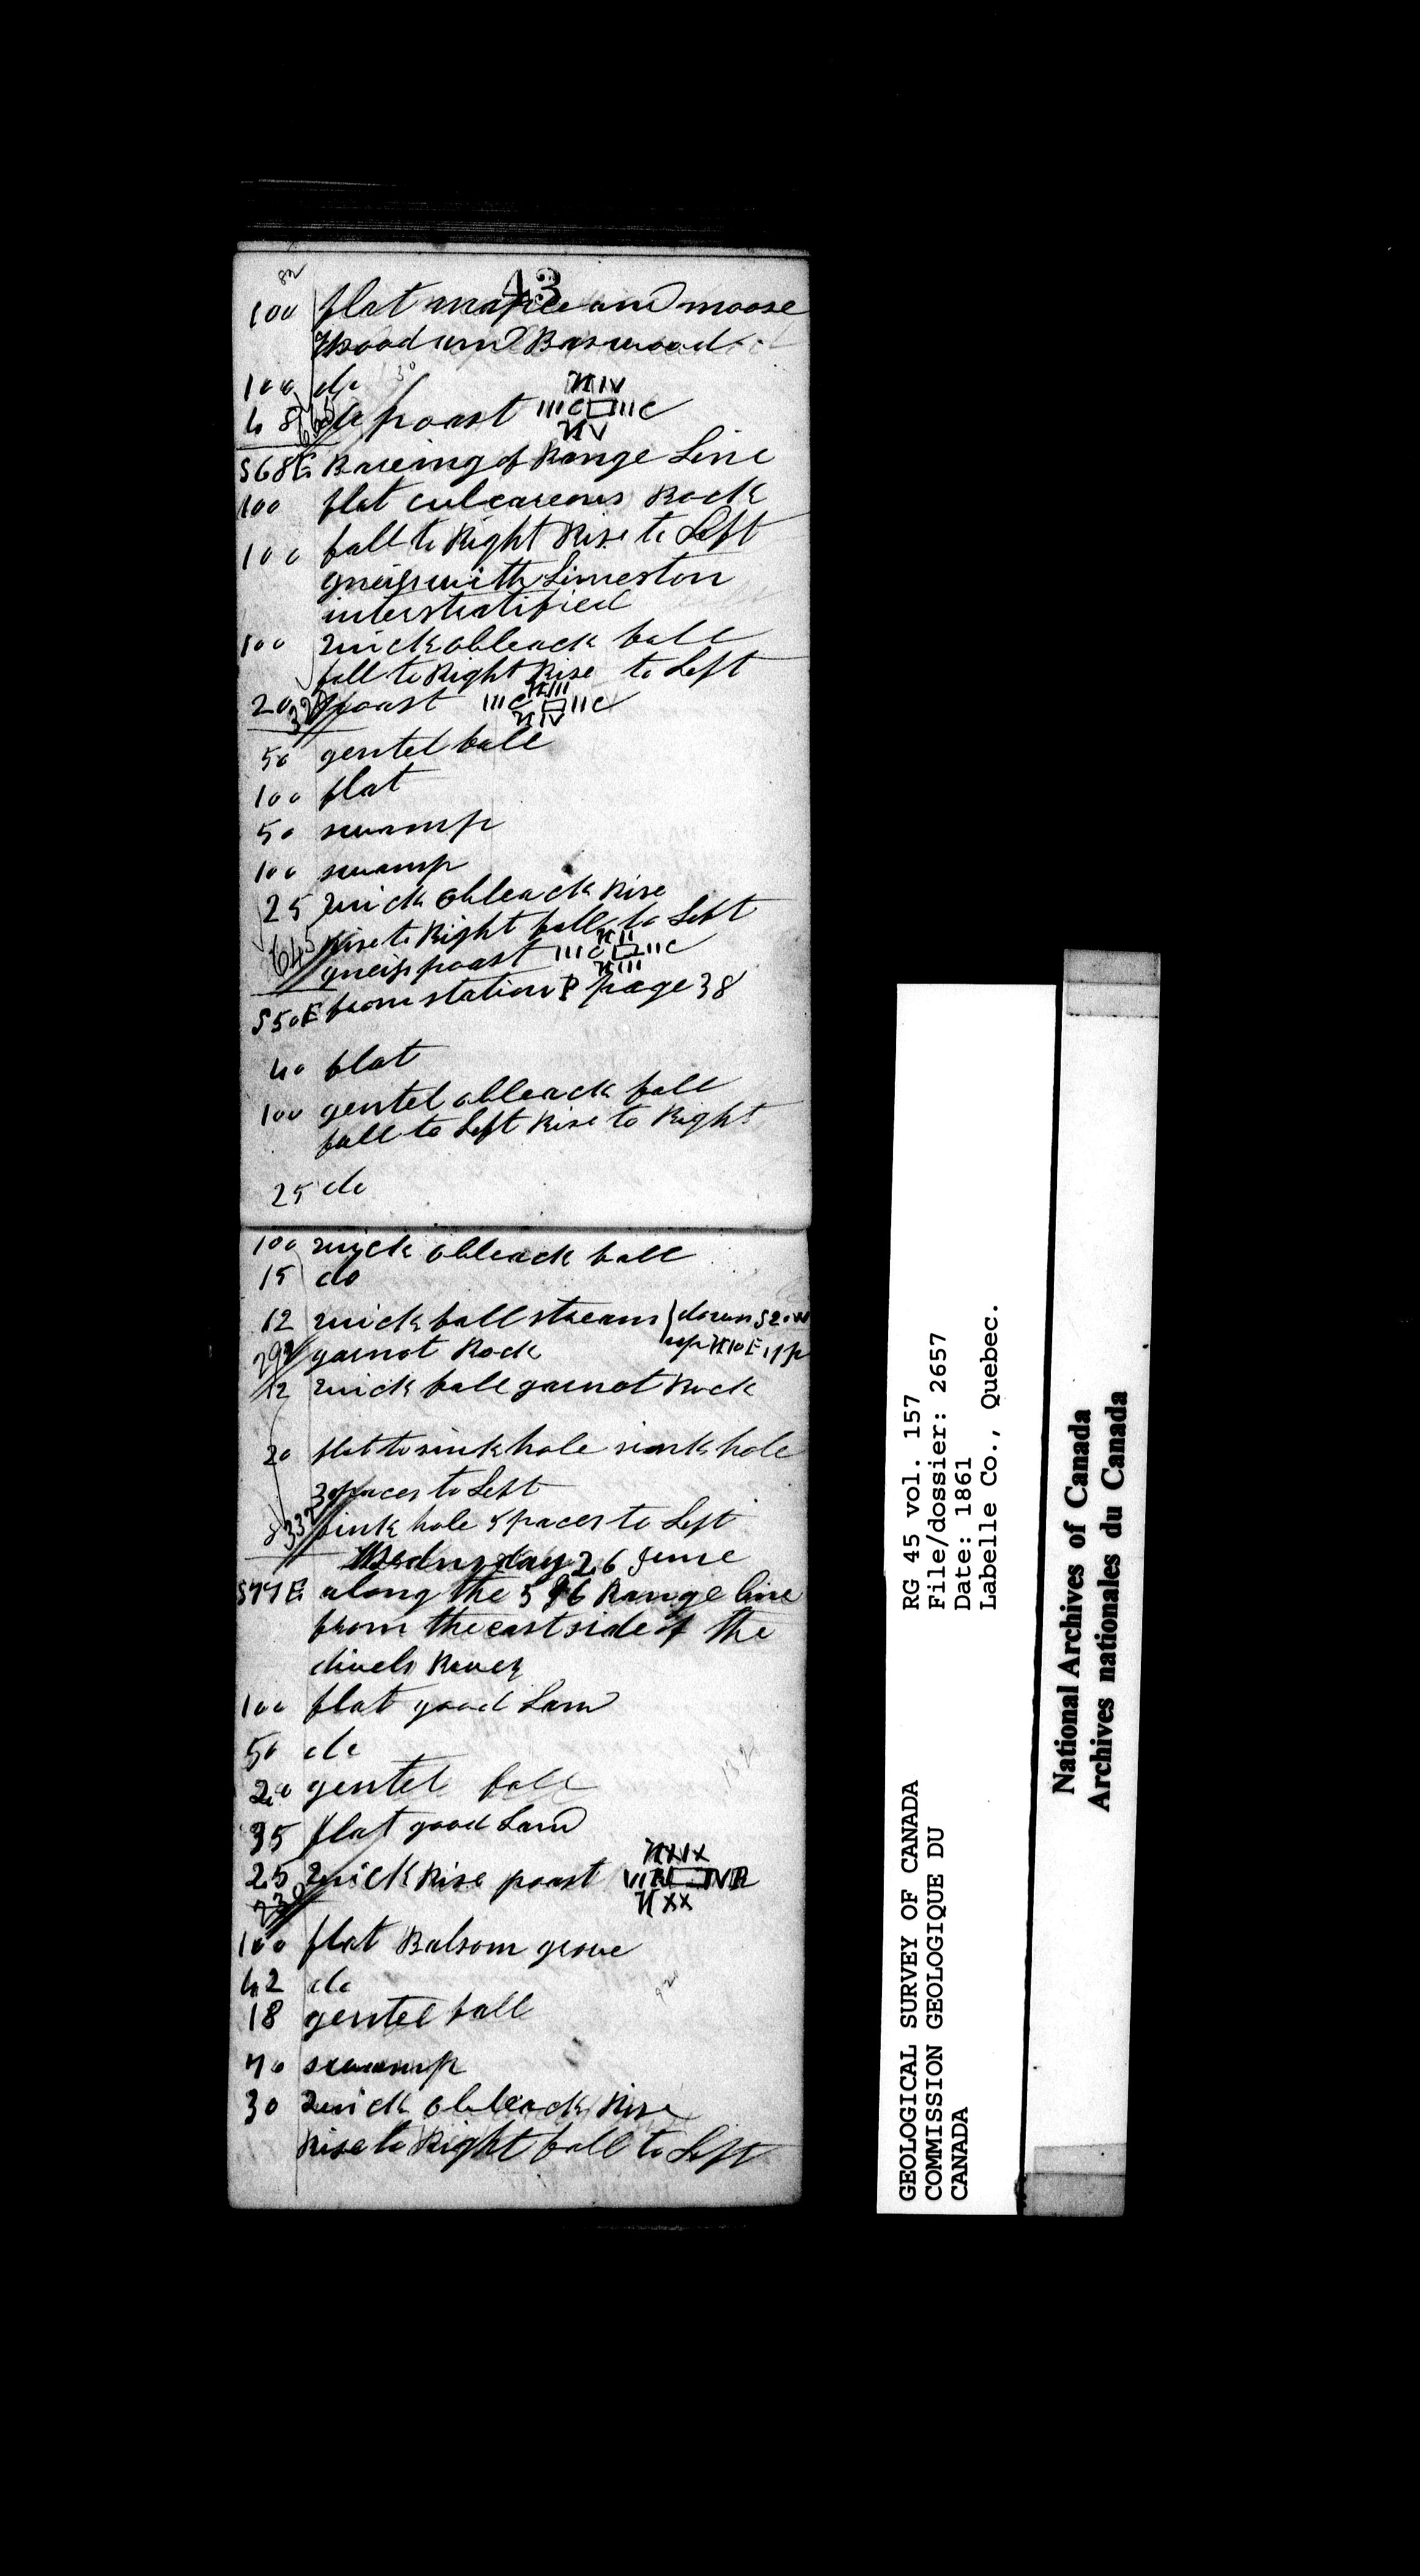 43
100 flat maple and moose
Wood and Basswood
100 do
48 do poast N IV IIIC IIIC N V
S68E Bareing of Range Line
100 flat culcareous Rock
100 fall to Right Rise to Left
gneiss with Limeston
interstratified
100 quick obleack fall
fall to Right Rise to Left
20 poast N III IIIC IIC N IV
320
50 gentel fall
100 flat
50 swamp
100 swamp
25 quick obleack Rise
Rise to Right fall to Left
645 gneiss poast N II IIIC IIC N III
S50E from station P page 38
40 flat
100 gentel obleack fall
fall to Left Rise to Right
25 do
100 quick obleack fall
15 do
12 quick fall stream } down S20W
292 garnot Rock up N10E 17 p
12 quick fall garnot Rock
20 flat to sink hole sink hole
30 paces to Left
8 332 sink hole 5 paces to Left
Wednesday 26 June
S77E along the 5 & 6 Range line
from the east side of the
divels River
100 flat good Land
50 do
20 gentel fall
35 flat good Land
25 quick Rise poast N XIX VIR VR N XX
230
100 flat Balsom grove
42 do
18 gentel fall
70 swamp
30 quick obleack Rise
Rise to Right fall to Left
GEOLOGICAL SURVEY OF CANADA
COMMISSION GEOLOGIQUE DU
CANADA
RG 45 vol. 157
File/dossier: 2657
Date: 1861
Labelle Co., Quebec.
National Archives of Canada
Archives nationales du Canada